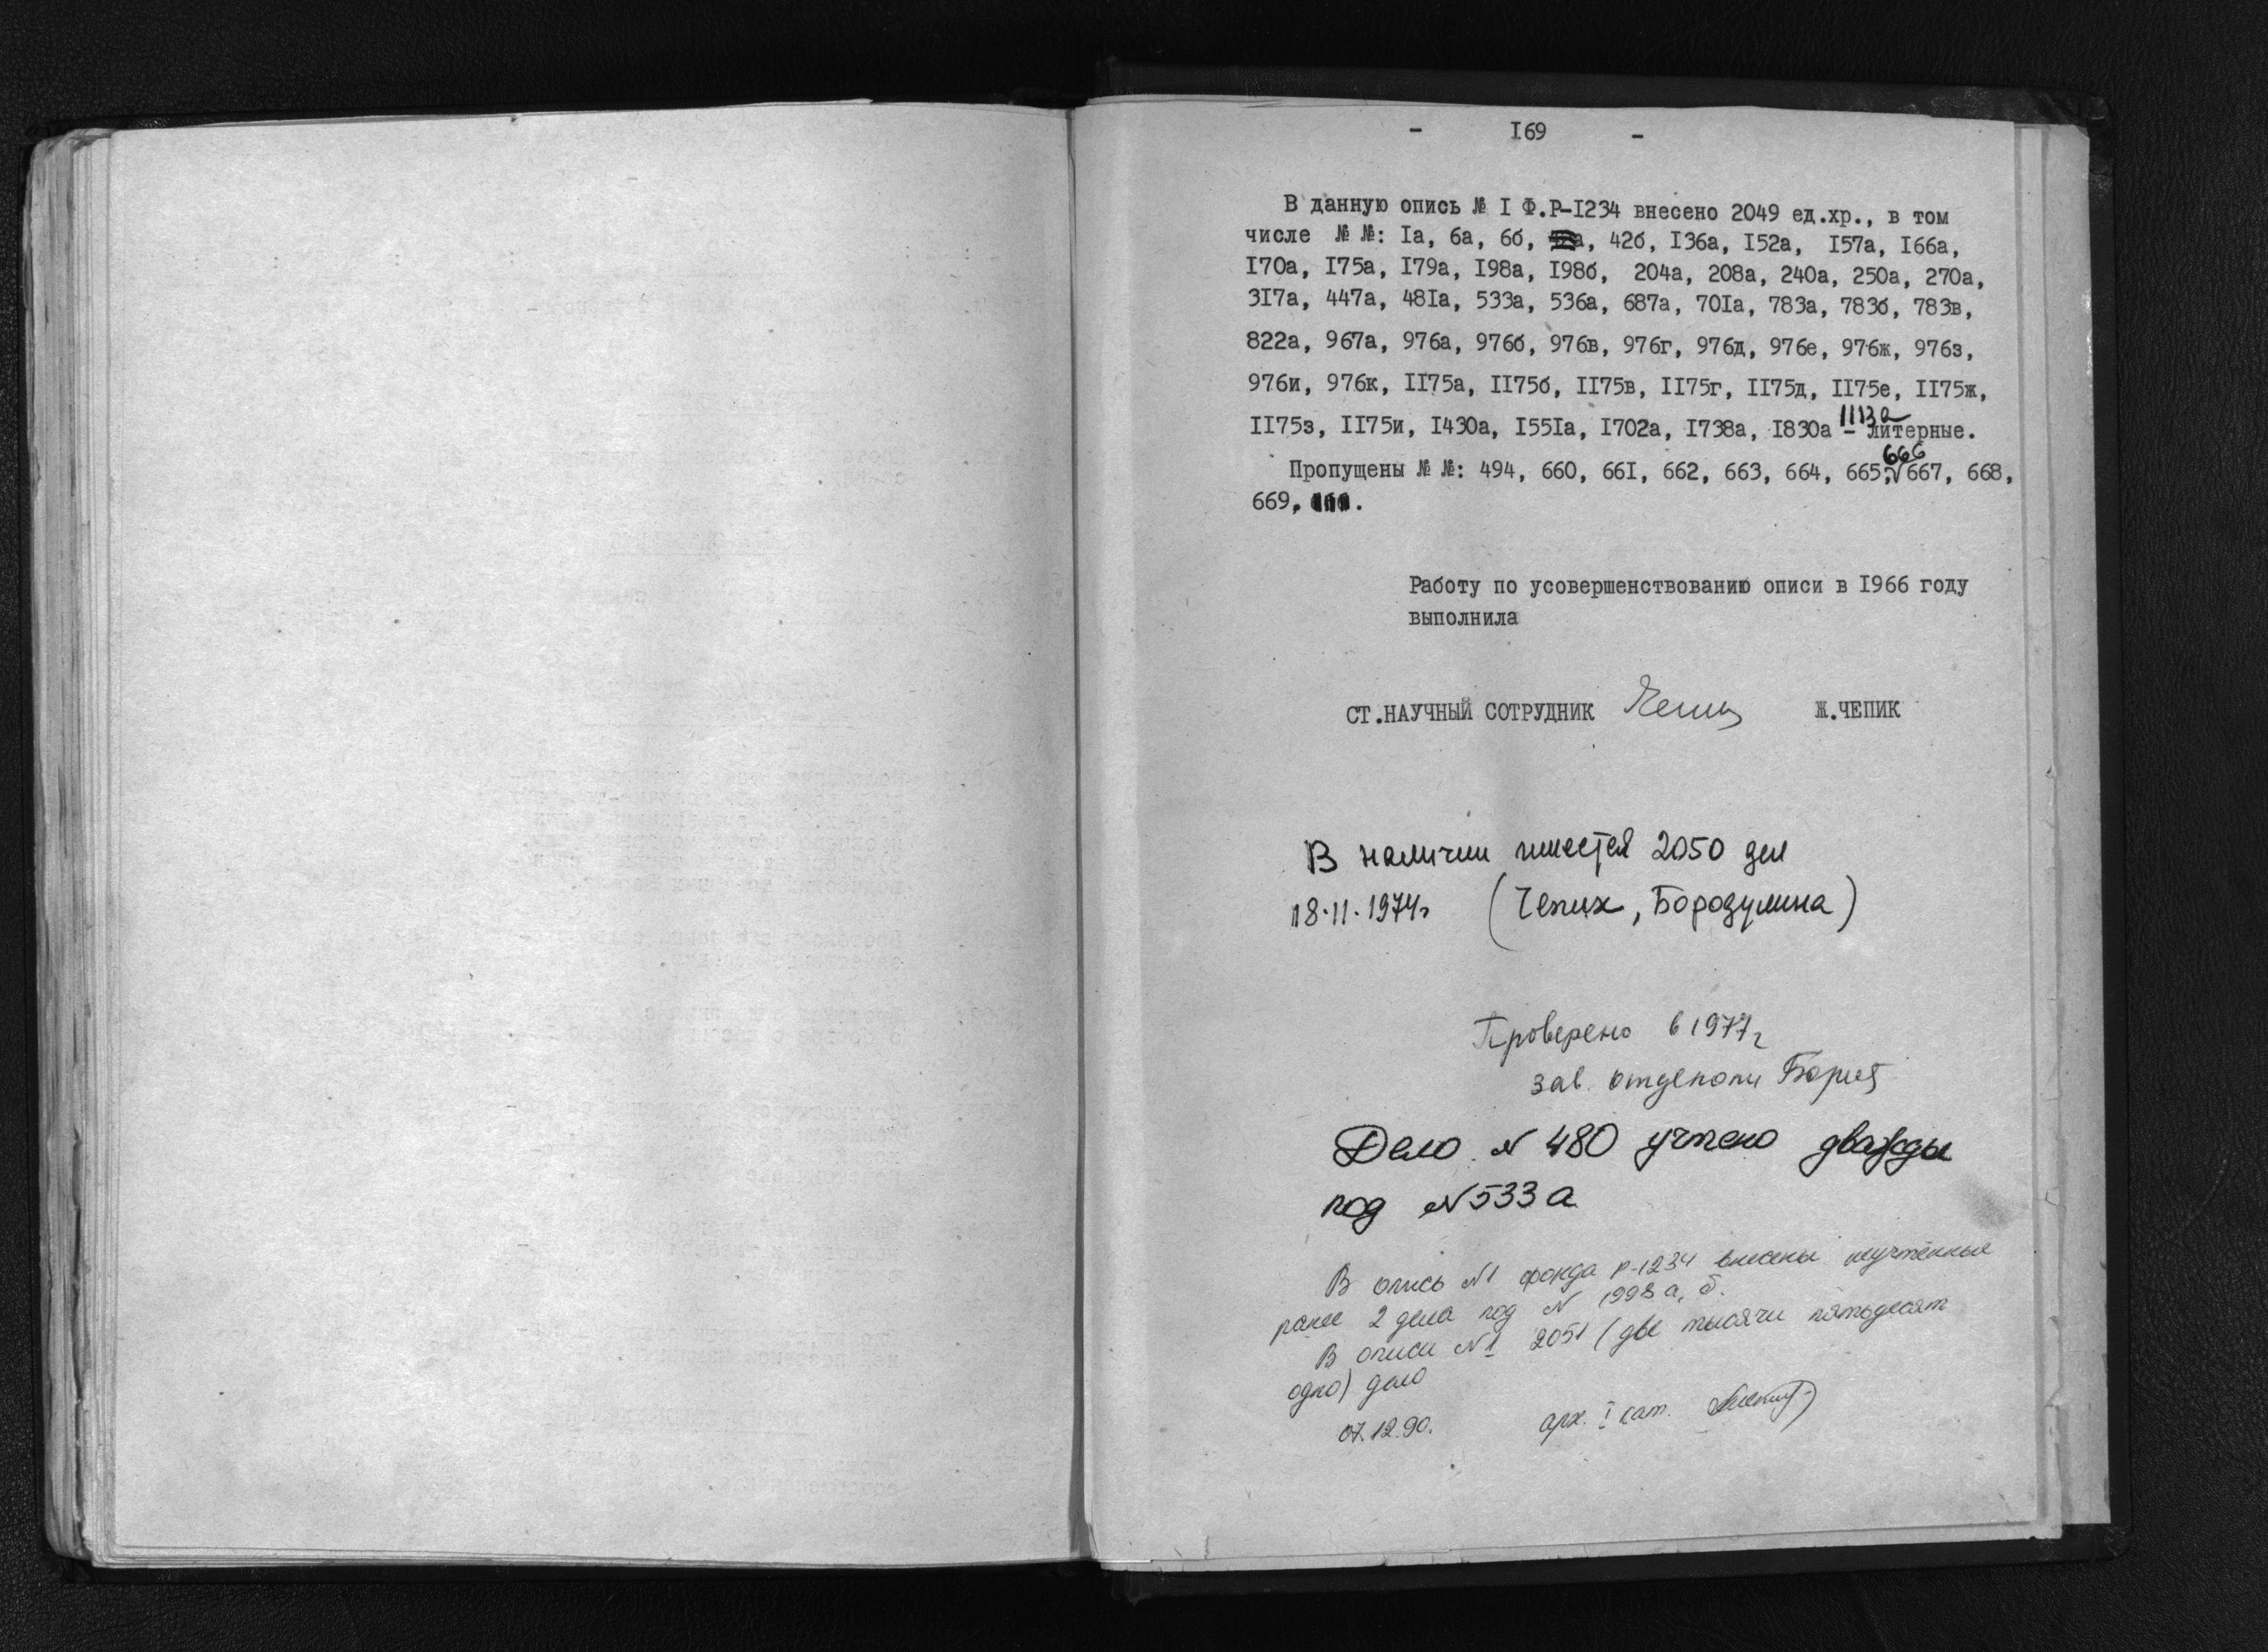 - 169 -
В данную опись № I Ф.Р-I234 внесено 2049 ед.хр., в том
числе № №: Iа, 6а, 6б, 42б, I36а, I52а, I57а, I66а,
I70а, I75а, I79а, I98а, I98б, 204а, 208а, 240а, 250а, 270а,
3I7а, 447а, 48Iа, 533а, 536а, 687а, 70Iа, 783а, 783б, 783в,
822а, 967а, 976а, 976б, 976в, 976г, 976д, 976е, 976ж, 976з,
976и, 976к, II75а, II75б, II75в, II75г, II75д, II75е, II75ж,
1113а
II75з, II75и, I430а, I55Iа, I702а, I738а, I830а – литерные.
666
Пропущены № №: 494, 660, 66I, 662, 663, 664, 665, 667, 668,
669, .
Работу по усовершенствованию описи в I966 году
выполнила
СТ.НАУЧНЫЙ СОТРУДНИК Ж.ЧЕПИК
В наличии имеется 2050 дел
18.11.1974г (Чепик, Бородулина)
Проверено в 1977г
зав. отделом
Дело N 480 учтено дважды
под N 533а
В опись N1 фонда Р-1234 внесены неучтённые
ранее 2 дела под N 1998а, б.
В описи N1 2051 (две тысячи пятьдесят
одно) дело
07.12.90. арх. I кат.